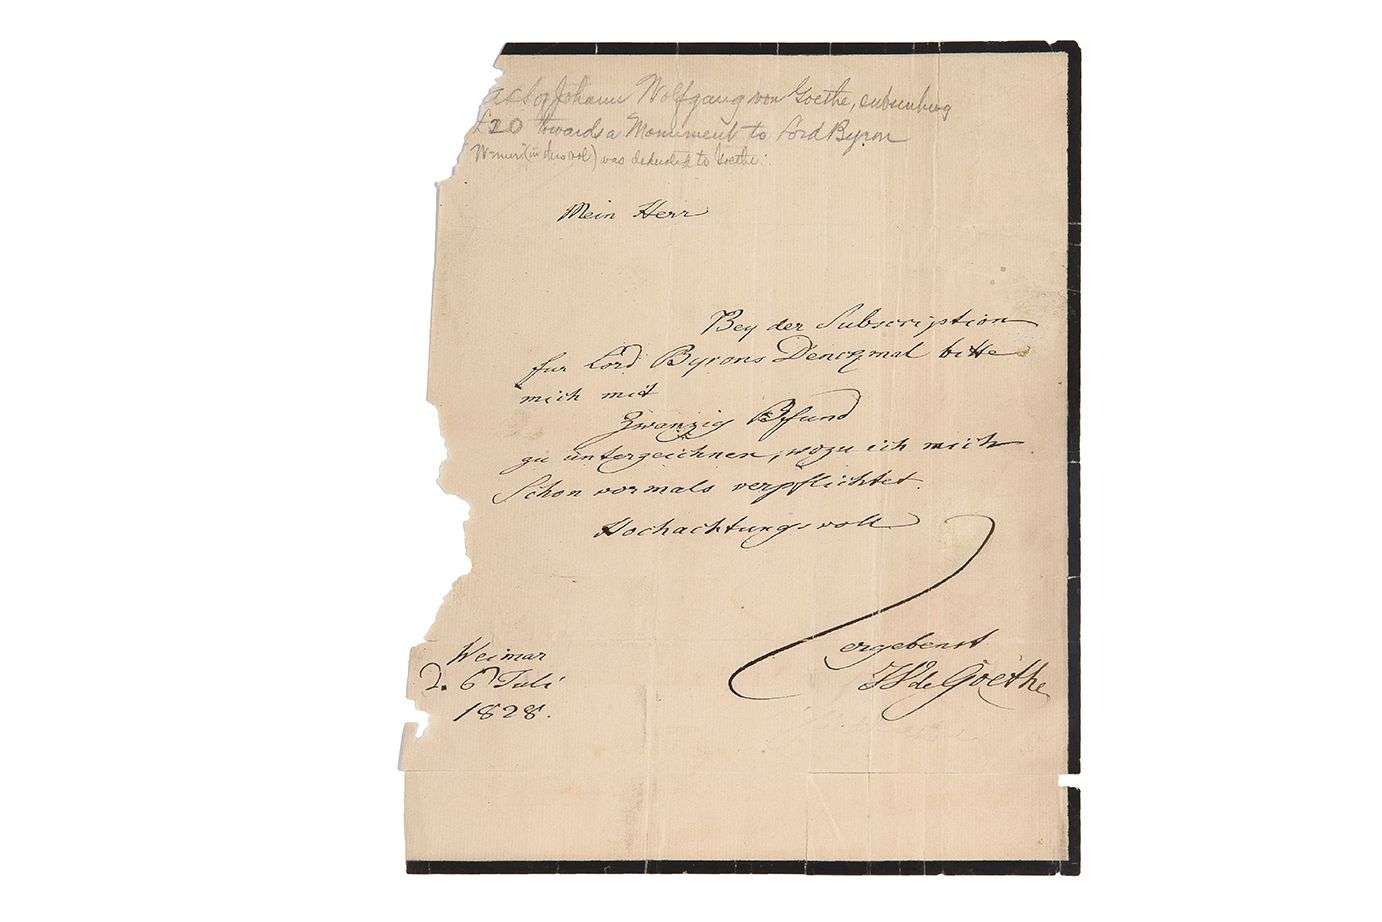 of Johann Wolfgang von Goethe, subscribing
£20 towards a Monument to Lord Byron
Werner (in this vol) was dedicated to Goethe.
Mein Herr
Bey der Subscription
fur Lord Byrons Dencqmal bitte
mich mit
Zwanzig Pfund
zu unterzeichnen, wozu ich mich
Schon vormals verpflichtet.
Hochachtungsvoll
ergebenst
JW de Goethe
Weimar
d. 6 Juli
1828.